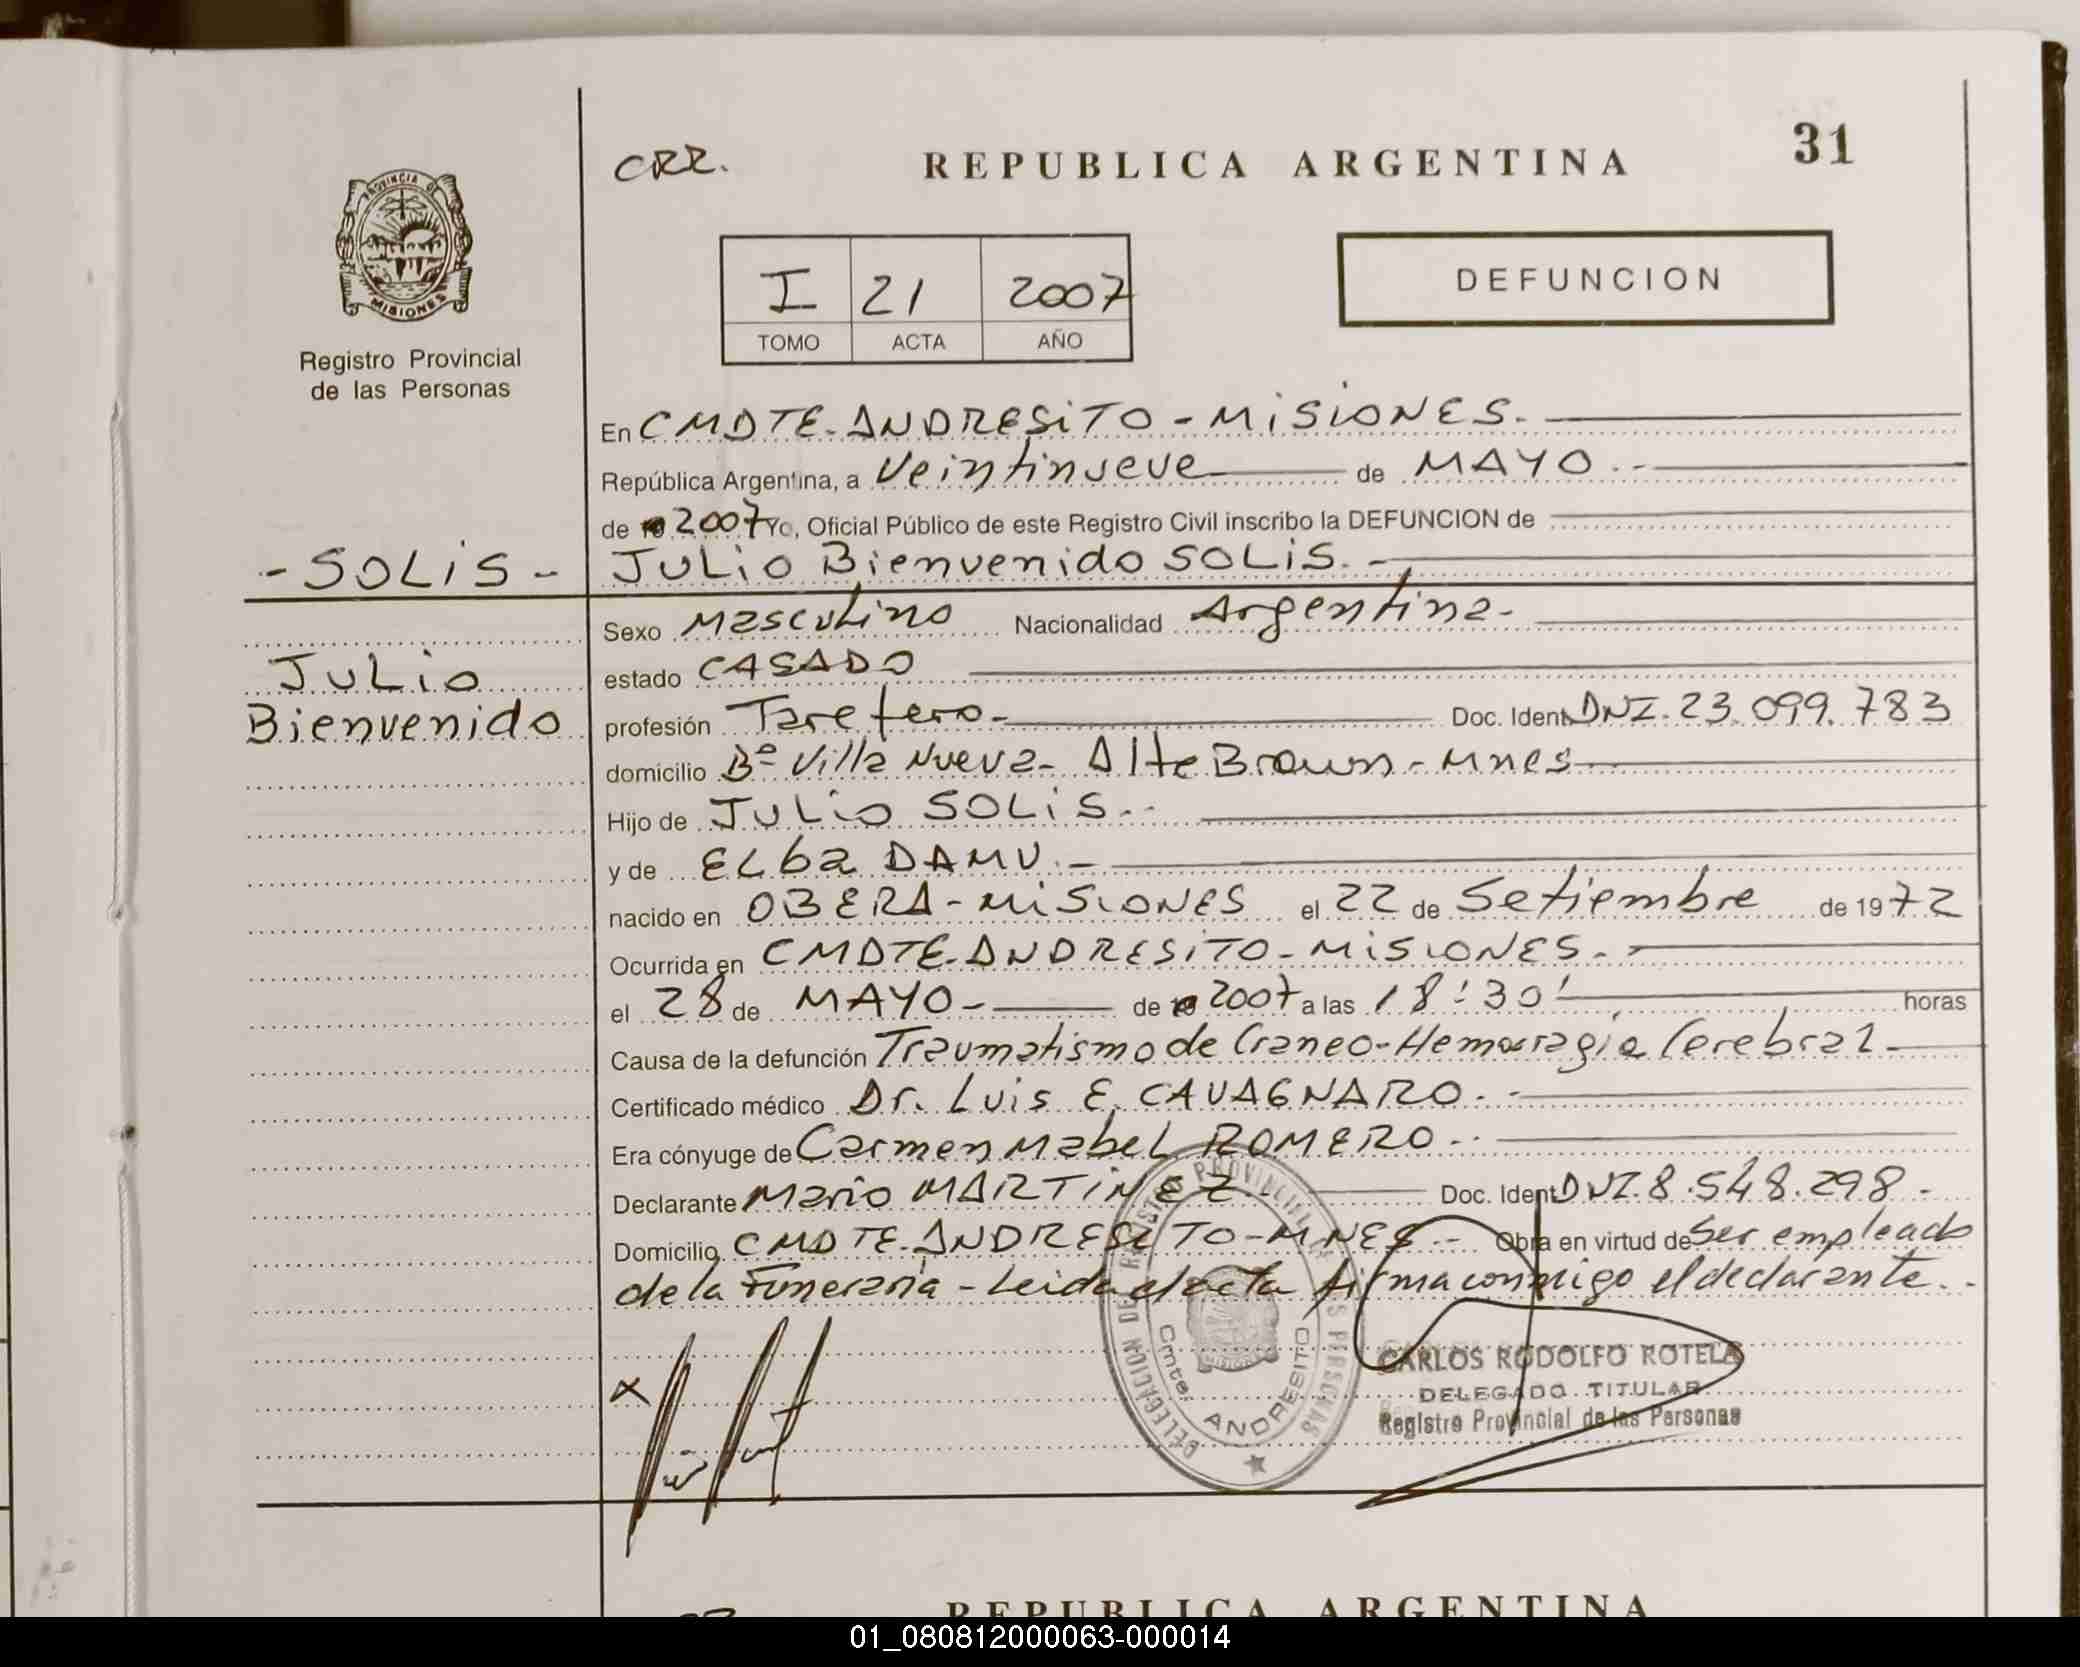 31
CRR. REPUBLICA ARGENTINA
PROVINCIA DE MISIONES
Registro Provincial
de las Personas
I 21 2007
TOMO ACTA AÑO
DEFUNCION
En CMDTE. ANDRESiTO - MiSiONES.
República Argentina, a Veintinueve de MAYO.-
de 2007 Yo, Oficial Público de este Registro Civil inscribo la DEFUNCION de
- SOLiS - JULio Bienvenido SOLiS.-
Sexo Masculino Nacionalidad Argentina-
JuLio
Bienvenido
estado CASADO
profesión Tarefero.- Doc. Ident. DNI. 23.099.783
domicilio Bº Villa Nueva - Alte Brown - Mnes
Hijo de JULio SOLiS.-
y de ELba DAMU.-
nacido en OBERA - MiSiONES el 22 de Setiembre de 1972
Ocurrida en CMDTE. ANDRESiTO - MiSiONES.-
el 28 de MAYO - de 2007 a las 18:30' horas
Causa de la defunción Traumatismo de Craneo - Hemorragia Cerebral
Certificado médico Dr. Luis E. CAVAGNARO.-
Era cónyuge de Carmen MabeL ROMERO.-
Declarante Mario MARTiNEZ.- Doc. Ident. DNI. 8.548.298.-
Domicilio CMDTE. ANDRESiTO - MNES.- Obra en virtud de Ser empleado
de la Funeraria - Leida el acta firma conmigo el declarante.-
DELEGACION DE REGISTRO PROVINCIAL DE LAS PERSONAS
Cmte. ANDRESITO
X
CARLOS RODOLFO ROTELA
DELEGADO TITULAR
Registro Provincial de las Personas
REPUBLICA ARGENTINA
01_080812000063-000014